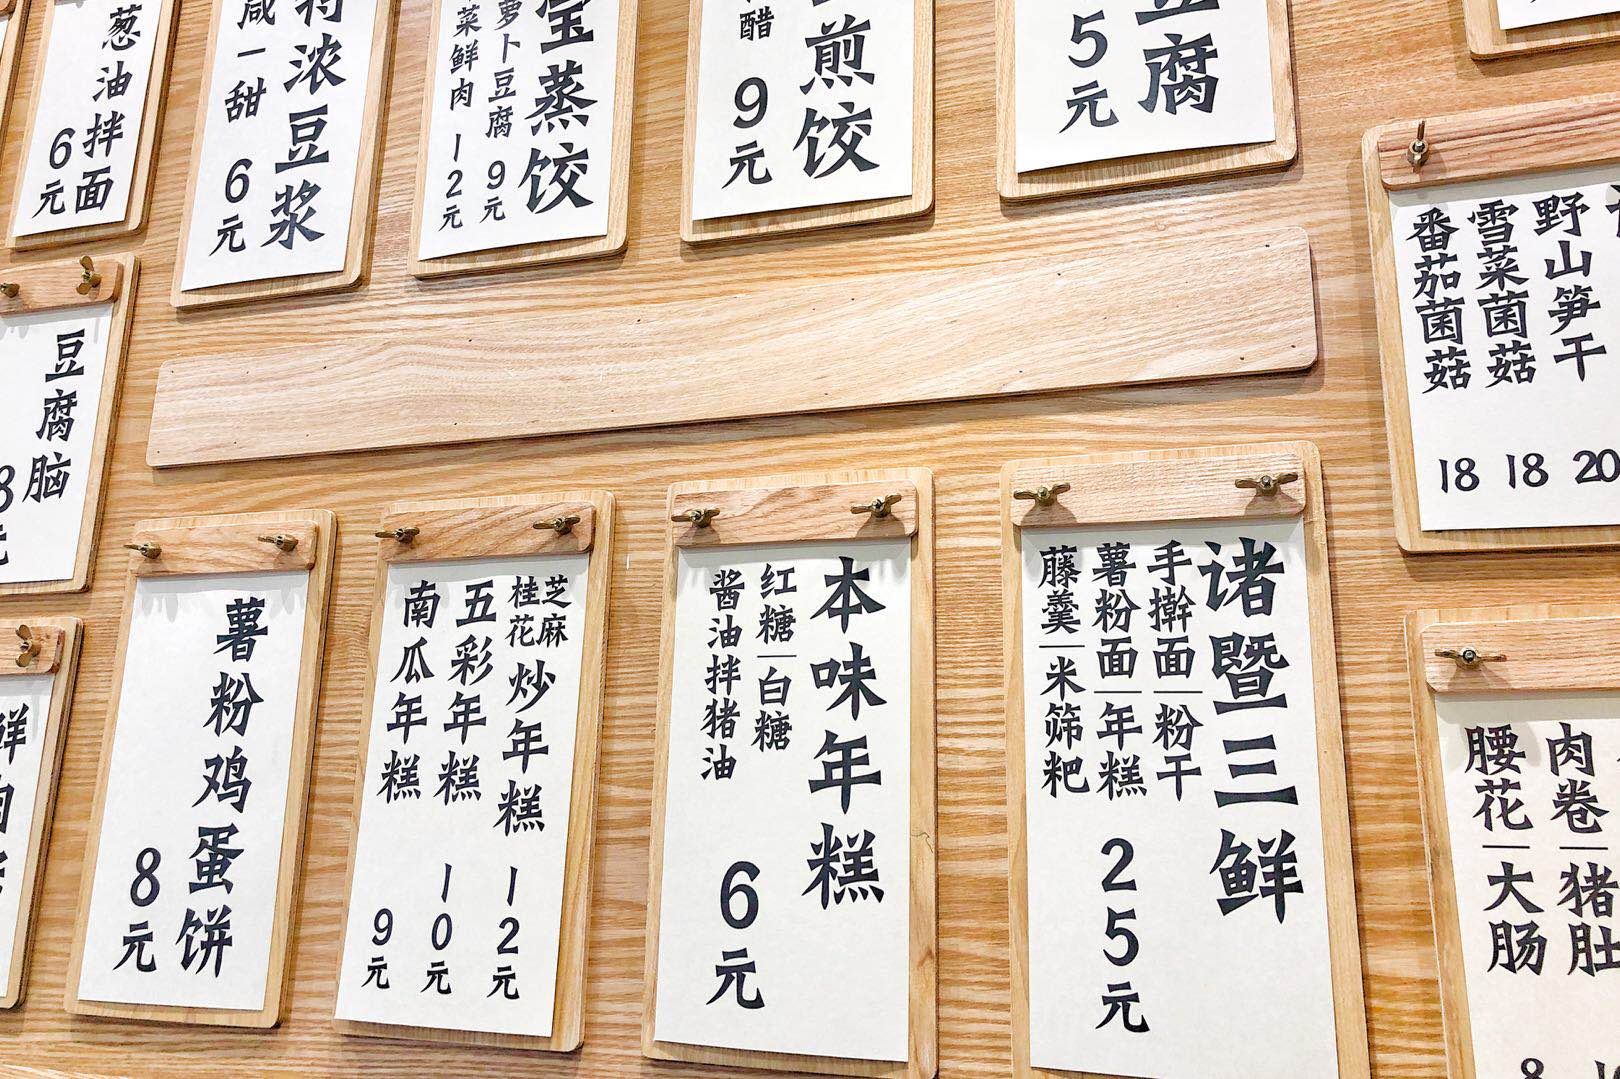 葱油拌面
6元
浓豆浆
咸一甜
6元
蒸饺
萝卜豆腐 9元
菜鲜肉 12元
煎饺
醋
9元
豆腐
5元
野山笋干 20
雪菜菌菇 18
番茄菌菇 18
豆腐脑
8元
薯粉鸡蛋饼
8元
芝麻
桂花
炒年糕 12元
五彩年糕 10元
南瓜年糕 9元
本味年糕
红糖|白糖
酱油拌猪油
6元
诸暨三鲜
手擀面|粉干
薯粉面|年糕
藤羹|米筛粑
25元
肉卷|猪肚
腰花|大肠
鲜肉